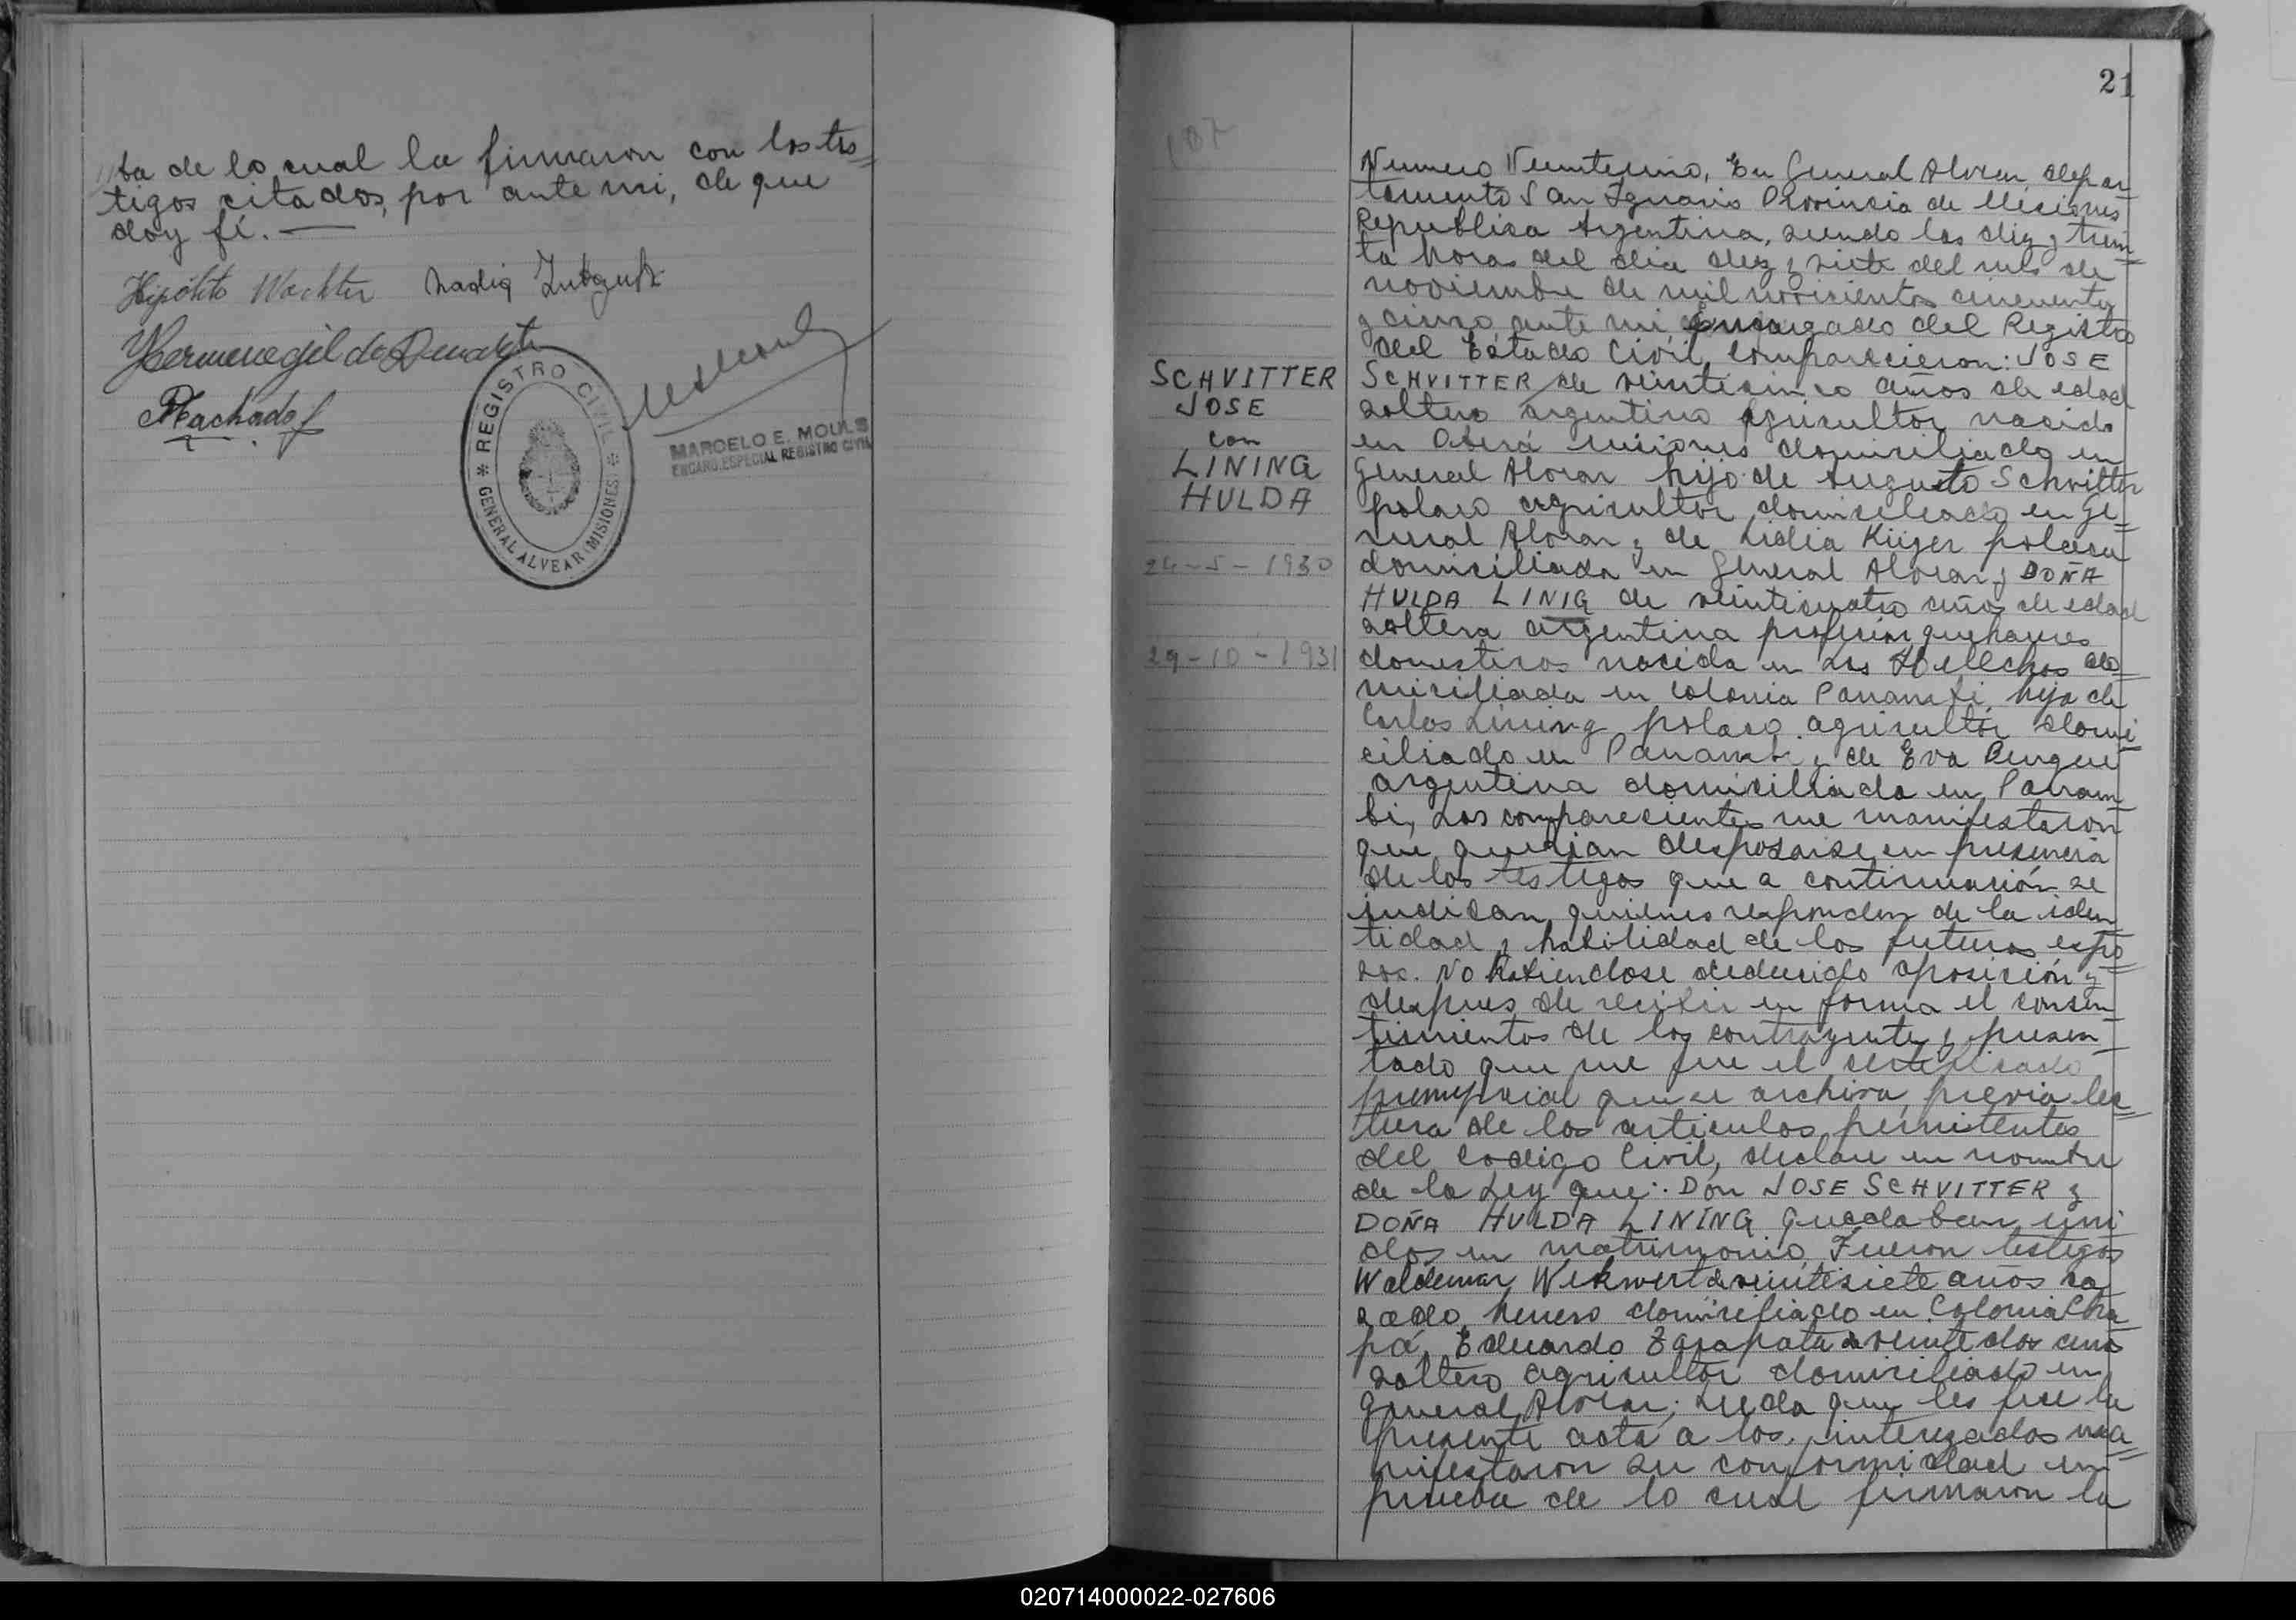 ta de lo cual la firmaron con los tes=
tigos citados, por ante mi, de que
doy fé. —
Hipólito Wachter
Hermenegildo Duarte
Machado
REGISTRO CIVIL
GENERAL ALVEAR (MISIONES)
MARCELO E. MOULS
ENCARG. ESPECIAL REGISTRO CIVIL
21
107
SCHVITTER
JOSE
con
LINING
HULDA
24-5-1930
29-10-1931
Numero Veinteuno, En General Alvear, depar=
tamento San Ignacio Provincia de Misiones
Republica Argentina, siendo las diez y trein=
ta horas del dia diez y siete del mes de
noviembre de mil novecientos cincuenta
y cinco ante mi, Encargado del Registro
del Estado Civil, comparecieron: JOSE
SCHVITTER de veinticinco años de edad
soltero argentino agricultor nacido
en Oberá misiones domiciliado en
General Alvear hijo de Augusto Schvitter
polaco agricultor domiciliado en Ge=
neral Alvear y de Lidia polaca
domiciliada en General Alvear y DOÑA
HULDA LINIG de veinticuatro años de edad
soltera argentina profesion quehaceres
domesticos nacida en Los Helechos do=
miciliada en Colonia Panambi, hija de
Carlos Lining polaco agricultor domi
ciliado en Panambi y de Eva
argentina domiciliada en Panam=
bi, Los comparecientes me manifestaron
que querian desposarse en presencia
de los testigos que a continuación se
indican quienes responden de la iden
tidad y habilidad de los futuros espo=
sos. No habiendose deducido oposición y
despues de recibir en forma el consen=
timientos de los contrayentes y presen=
tado que me fue el certificado
prenupcial que se archiva, previa lec=
tura de los articulos pernitentes
del Codigo Civil, declare en nombre
de la Ley que: Don JOSE SCHVITTER y
DOÑA HULDA LINING quedaban uni
dos en matrimonio, Fueron testigos
Waldemar Wekwert de veintesiete años ca
sado, herrero domiciliado en Colonia Cha
pá, Eduardo Zarapata de veintedos años
soltero agricultor domiciliado en
General Alvear; Leida que les fue la
presente acta a los interezados ma=
nifestaron su conformidad en
prueba de lo cual firmaron la
020714000022-027606